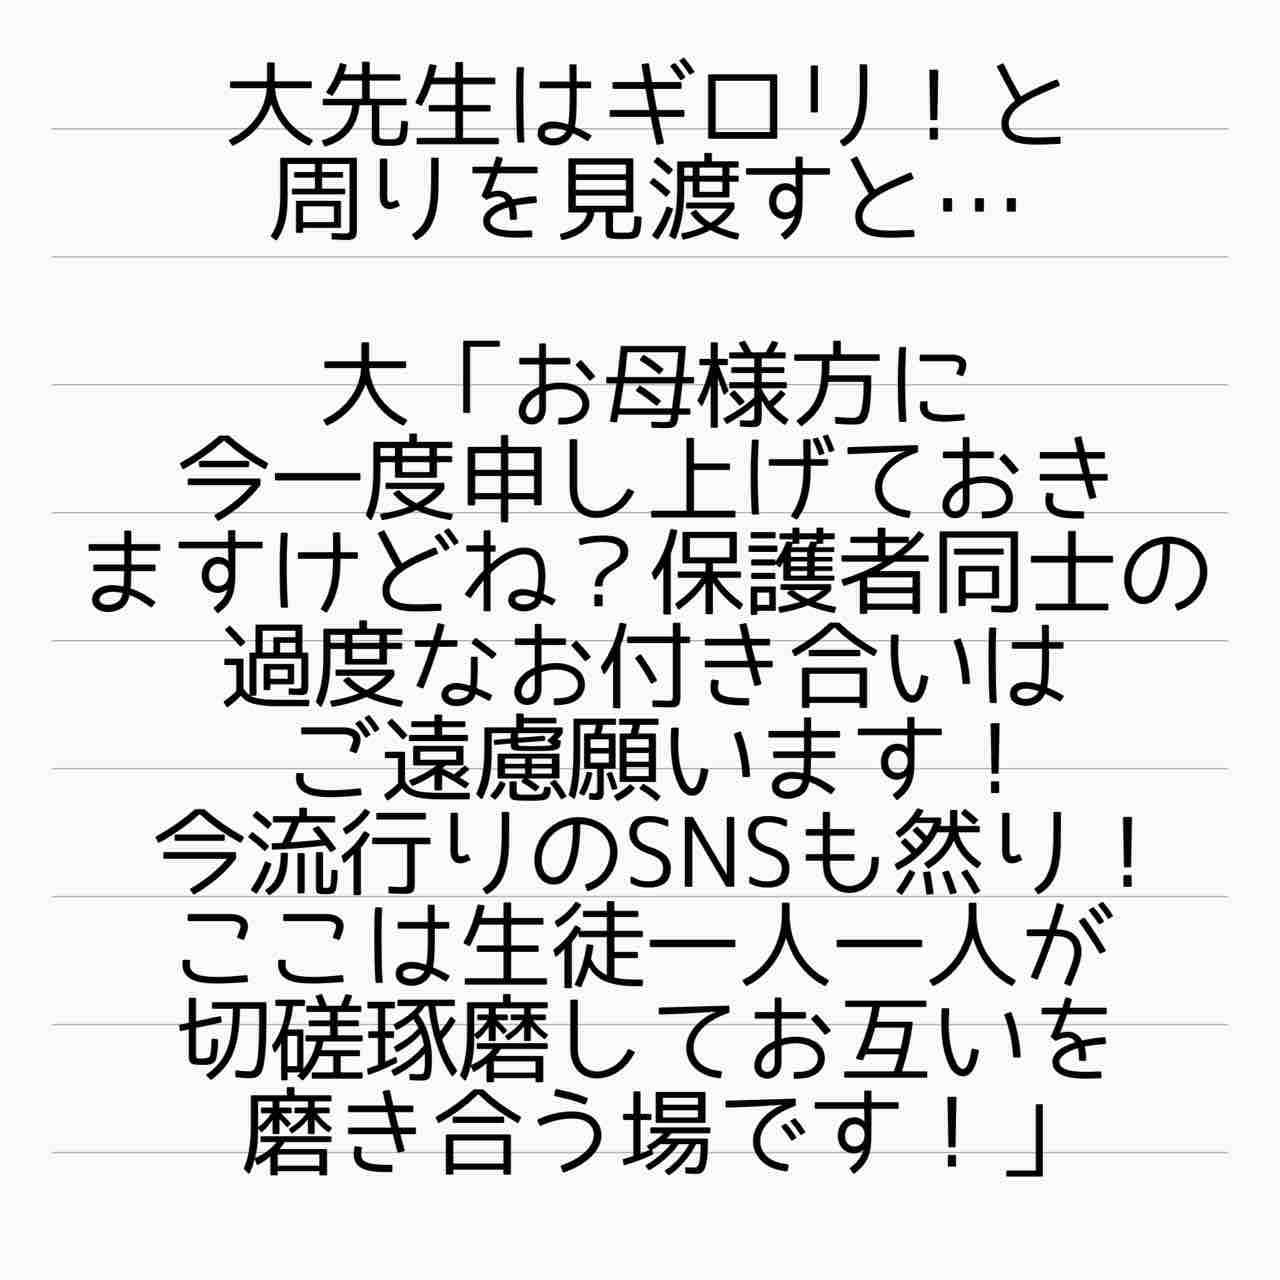 大先生はギロリ！と
周りを見渡すと…
大「お母様方に
今一度申し上げておき
ますけどね？保護者同士の
過度なお付き合いは
ご遠慮願います！
今流行りのSNSも然り！
ここは生徒一人一人が
切磋琢磨してお互いを
磨き合う場です！」